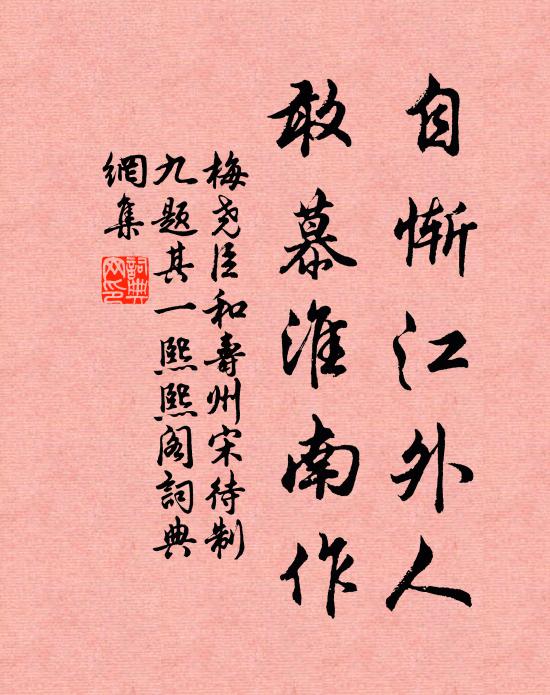 自惭江外人
敢慕淮南作
梅尧臣和寿州宋待制
九题其一熙熙阁詞典
網集
詞典網印